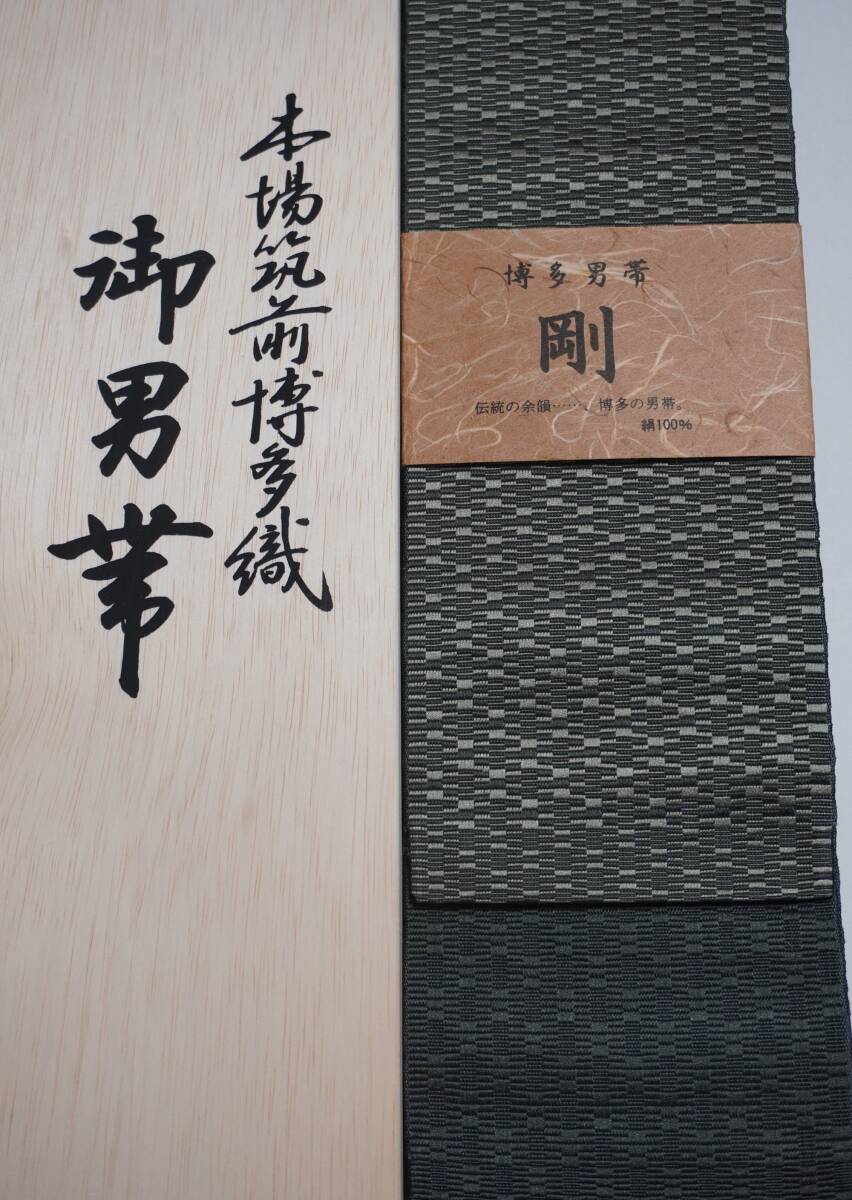 本場筑前博多織
御男帯
博多男帯
剛
伝統の余韻……、博多の男帯。
絹100%